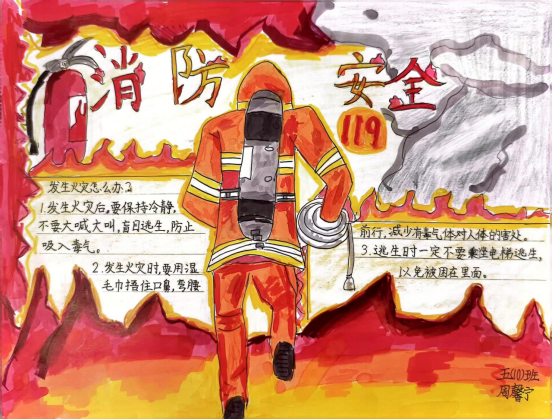 消防安全
119
发生火灾怎么办？
1.发生火灾后,要保持冷静,
不要大喊大叫,盲目逃生,防止
吸入毒气。
2.发生火灾时,要用湿
毛巾捂住口鼻,弯腰
前行,减少有毒气体对人体的害处。
3.逃生时一定不要乘坐电梯逃生,
以免被困在里面。
五(10)班
周馨宁